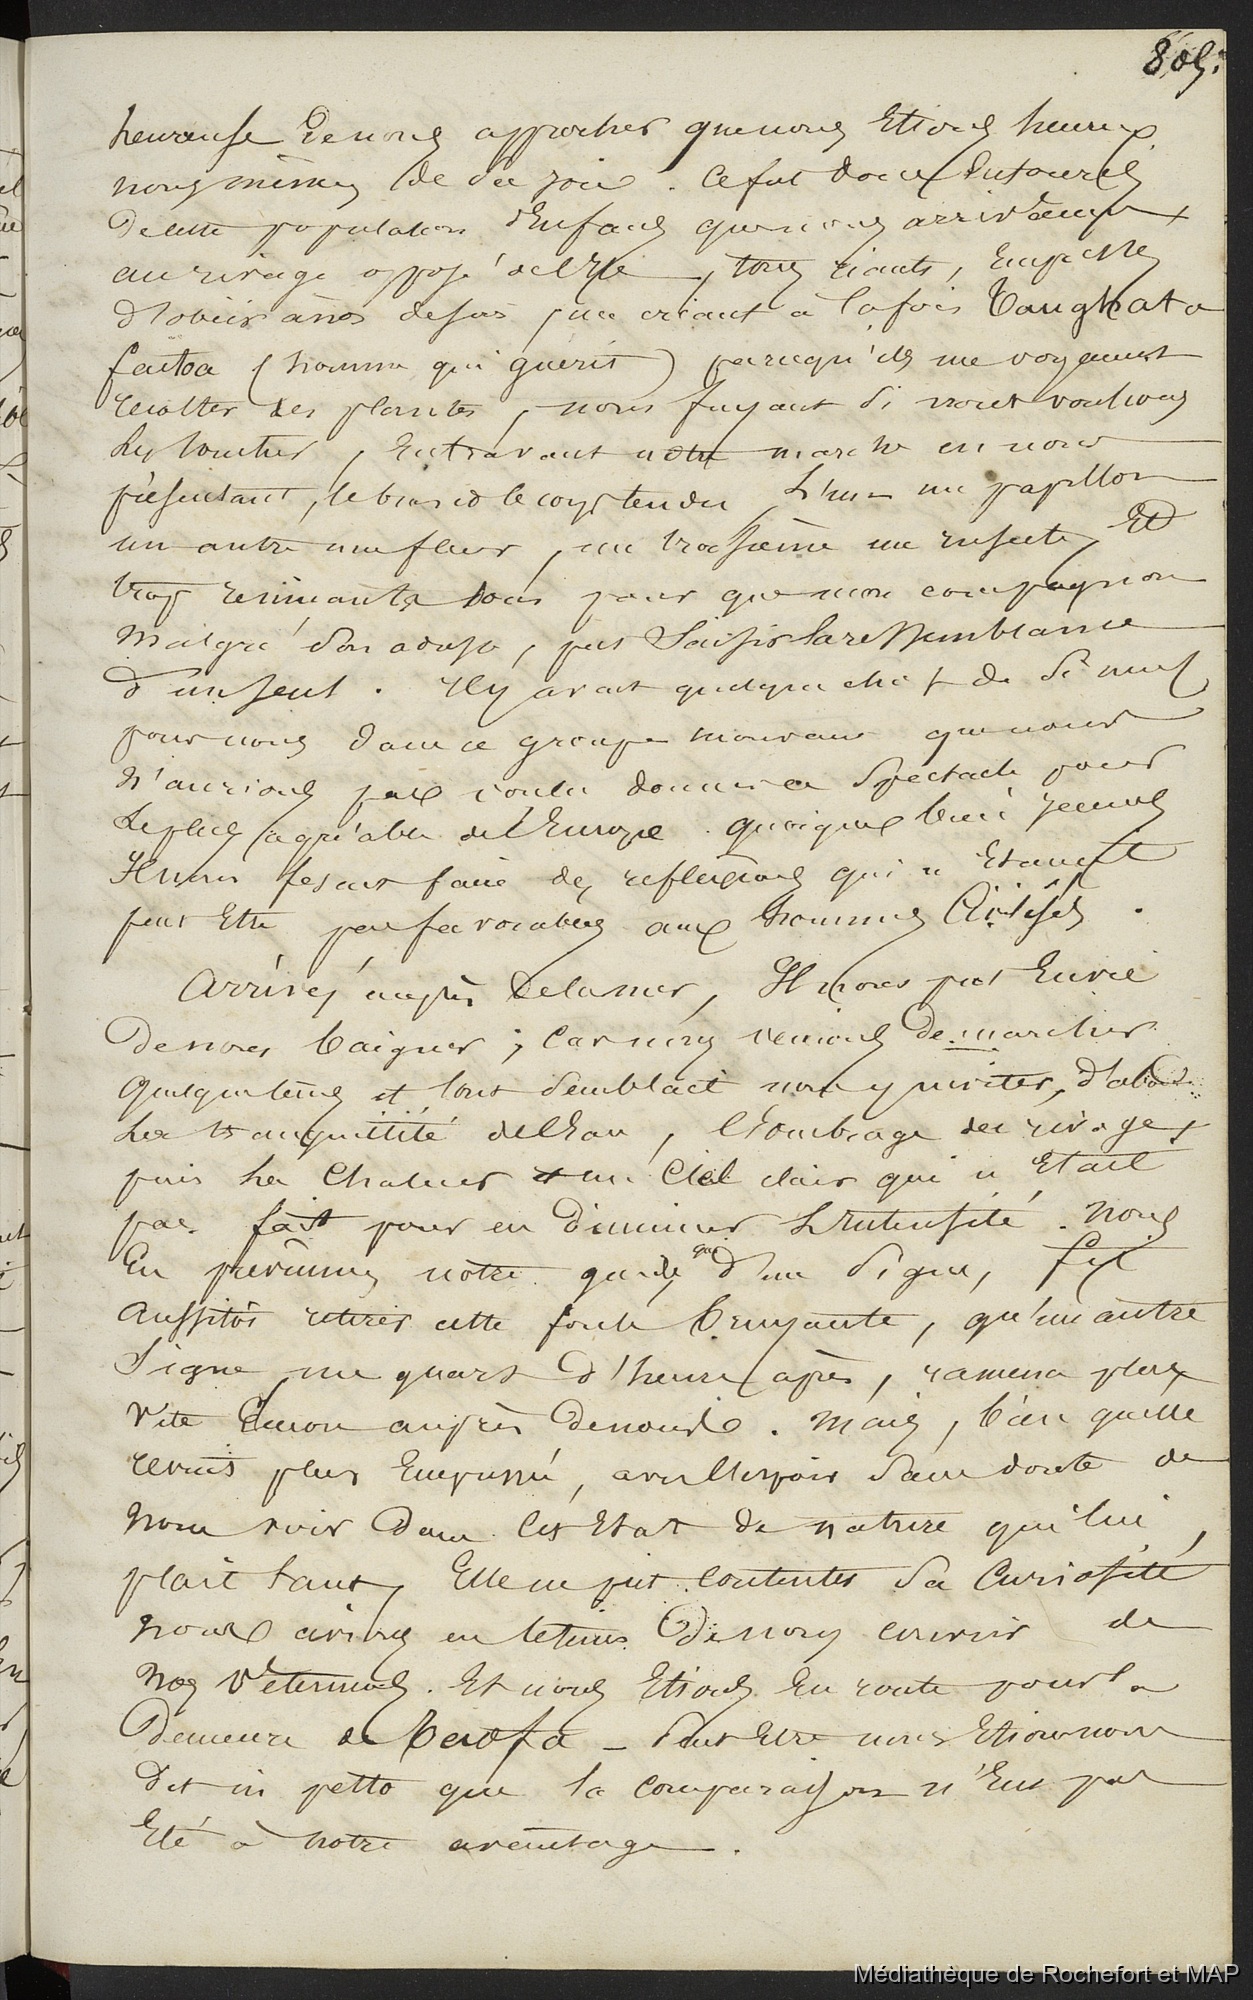 805.
heureuse de nous approcher que nous Etions heureux
nous mêmes de sa joie. Ce fut donc Entourés
de cette population d'Enfans que nous arrivâmes
au rivage opposé de l'Ile, tous riants, Empressés
d'obéir à nos desirs, me criant à la fois Tanghata
faitoa (homme qui guérit) parcequ'ils me voyaient
recolter des plantes, nous fuyant si nous voulions
les toucher, Entravant notre marche en nous
présentant, le bras et le corps tendu, L'un un papillon
un autre une fleur, un troisieme un insecte, Et
trop remuants tous pour que mon compagnon
malgré son adresse, put Saisir la ressemblance
d'un seul. Il y avait quelque chose de si neuf
pour nous dans ce groupe mouvant que nous
n'aurions pas voulu donner ce Spectacle pour
le plus agréable de l'Europe. quoique bien jeunes
Il nous fesait faire des reflexions qui n'Etaient
peut Etre pas favorables aux hommes Civilisés.
Arrivés auprès de la mer, Il nous prit Envie
de nous baigner; Car nous venions de marcher
quelque tems et tout semblait nous y inviter, d'abord
La tranquillité de l'Eau, l'Ombrage des rivages
puis la Chaleur et un Ciel clair qui n'Etait
pas fait pour en diminuer L'intensité. Nous
En prévinmes notre guide que d'un Signe, fit
aussitôt retirer cette foule bruyante, qu'un autre
Signe un quart d'heure après, ramena plus
vite Encore auprès de nous. Mais, bien quelle
revint plus Empressée, avec l'Espoir sans doute de
nous voir dans cet Etat de nature qui lui
plait tant, Elle ne put contenter sa Curiosité
nous avions eu le tems de nous couvrir de
nos vêtemens. Et nous Etions En route pour la
Demeure de - peut Etre nous Etions nous
dit in petto que la comparaison n'Eut pas
Eté à notre avantage.
Médiathèque de Rochefort et MAP